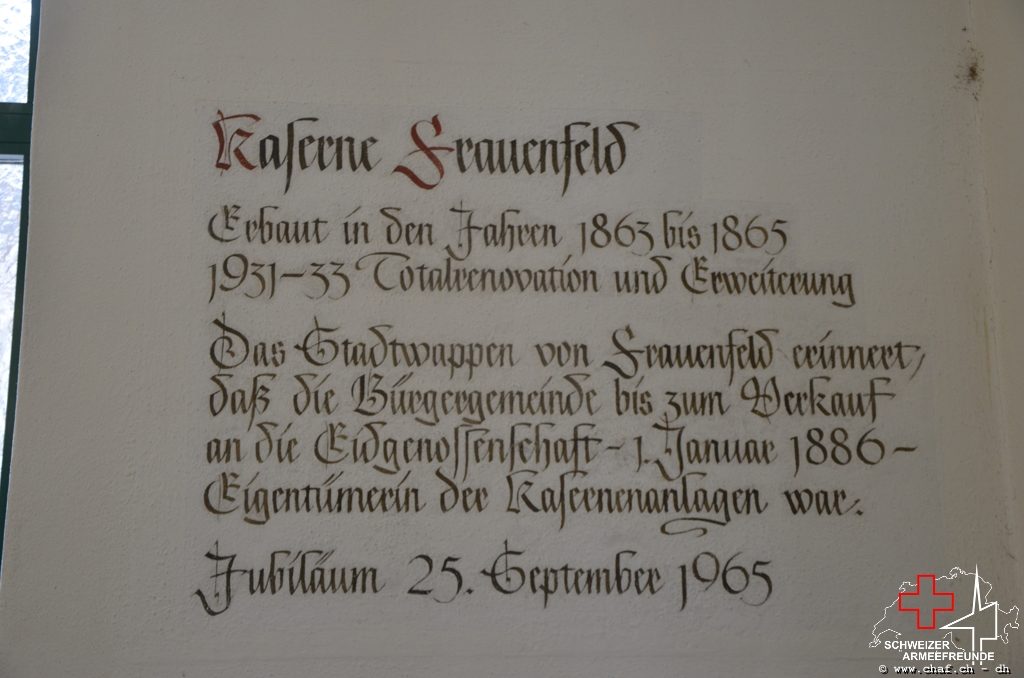 Kaserne Frauenfeld
Erbaut in den Jahren 1863 bis 1865
1931–33 Totalrenovation und Erweiterung
Das Stadtwappen von Frauenfeld erinnert,
daß die Bürgergemeinde bis zum Verkauf
an die Eidgenossenschaft – 1. Januar 1886 –
Eigentümerin der Kasernenanlagen war.
Jubiläum 25. September 1965
SCHWEIZER
ARMEEFREUNDE
© www.chaf.ch - dh